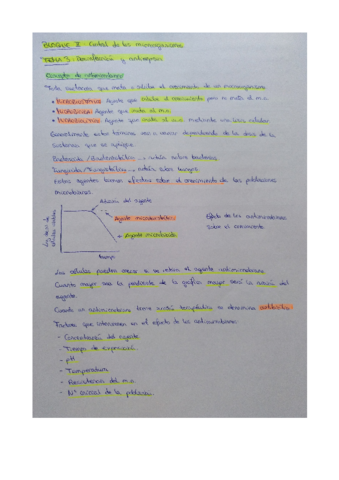 BLOQUE II: Control de los microorganismos
TEMA 3: Desinfección y antisepsia
Concepto de antimicrobiano
Toda sustancia que mata o inhibe el crecimiento de un microorganismo
• Agente que inhibe el crecimiento pero no mata al m.o.
• Agente que mata al m.o.
• Agente que mata al m.o. mediante lisis celular
Generalmente estos términos van a variar dependiendo de la dosis de la
sustancia que se aplique.
Bactericida / Bacteriostático → actúa sobre bacterias
Fungicida / Fungistático → actúa sobre hongos
Estos agentes tienen efectos sobre el crecimiento de las poblaciones
microbianas
Adición del agente
Agente microbiostático
Agente microbicida
Efecto de los antimicrobianos
sobre el crecimiento
tiempo
Las células pueden crecer si se retira el agente antimicrobiano
Cuanto mayor sea la pendiente de la gráfica mayor será la acción del
agente.
Cuando un antimicrobiano tiene acción terapéutica se denomina antibiótico
Factores que intervienen en el efecto de los antimicrobianos:
- Concentración del agente
- Tiempo de exposición
- pH
- Temperatura
- Resistencia del m.o.
- Nº inicial de la población